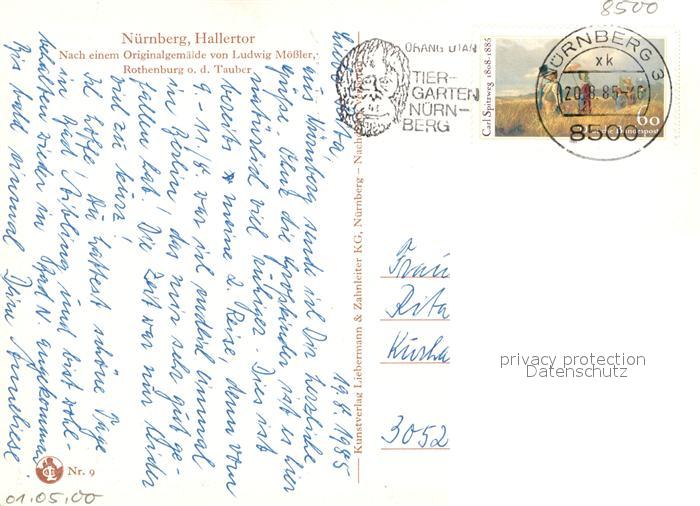 8500
Nürnberg, Hallertor
Nach einem Originalgemälde von Ludwig Mößler,
Rothenburg o. d. Tauber
ORANG UTAN
TIER-
GARTEN
NÜRN-
BERG
Carl Spitzweg 1808-1885
60
Deutsche Bundespost
NÜRNBERG 3
xk
20.8.85-16
8500
19.8.1985
Liebe Rita,
aus Nürnberg sende ich Dir herzliche
Grüße. Ohne die Großkinder ist es hier
natürlich viel ruhiger. Dies ist
bereits meine 2. Reise, denn vom
9. – 11.8. war ich endlich einmal
in Berlin, das mir sehr gut ge-
fallen hat. Die Zeit war nur leider
viel zu kurz.
Ich hoffe, Du hattest schöne Tage
in Bad Aibling und bist wohl-
behalten wieder in Bad N. angekommen.
Bis bald einmal Deine Anneliese
Kunstverlag Liebermann & Zahnleiter KG, Nürnberg – Nachdr
Frau
Rita
3052
privacy protection
Datenschutz
Nr. 9
01.05.00